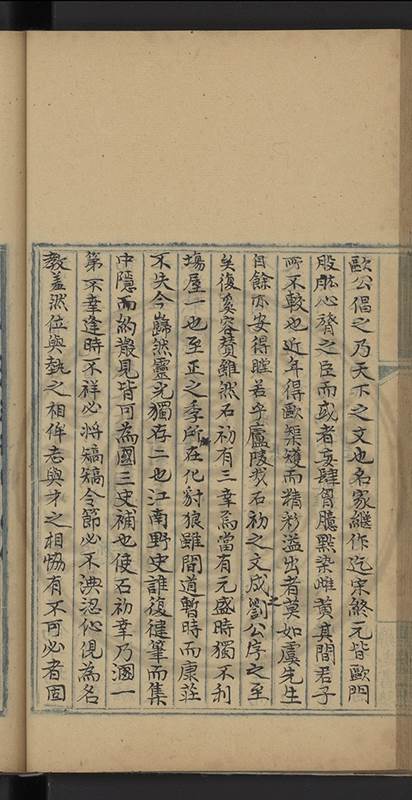 歐公倡之乃天下之文也名家繼作迄宋終元皆歐門
股肱心膂之臣而或者妄肆胷臆點染雌黄其間君子
所不較也近年得歐榘矱而精彩溢出者莫如虞先生
自餘亦安得瞠若乎廬陵哉石初之文成劉公序之至
矣復奚容贅雖然石初有三幸焉當有元盛時獨不利
塲屋一也至正之季所在化豺狼雖間道暫時而康莊
不失今巋然靈光獨存二也江南野史誰復健筆而集
中隱而約散見皆可為國三史補也使石初幸乃溷一
第不幸逢時不祥必將稿稿令節必不淟涊伈俔為名
教羞然位與埶之相侔志與才之相恊有不可必者固